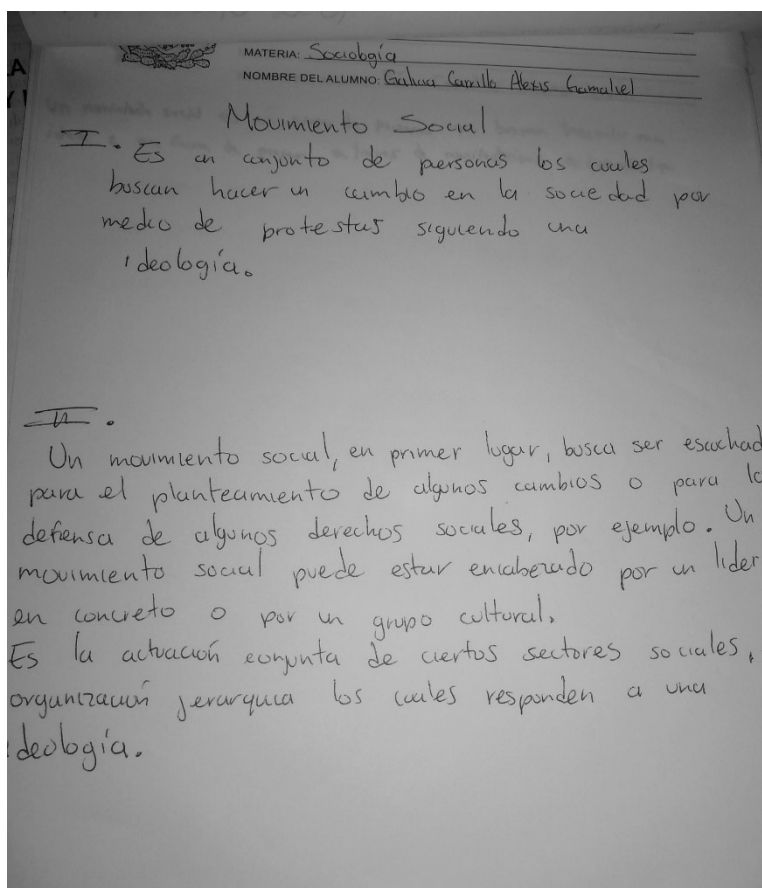 A
Y I
MATERIA: Sociología
NOMBRE DEL ALUMNO: Carrillo Alexis Gamaliel
Movimiento Social
I. Es un conjunto de personas los cuales
buscan hacer un cambio en la sociedad por
medio de protestas siguiendo una
ideología.
II.
Un movimiento social, en primer lugar, busca ser escuchad
para el planteamiento de algunos cambios o para la
defensa de algunos derechos sociales, por ejemplo. Un
movimiento social puede estar encabezado por un lider
en concreto o por un grupo cultural.
Es la actuación conjunta de ciertos sectores sociales,
organización jerarquica los cuales responden a una
ideología.